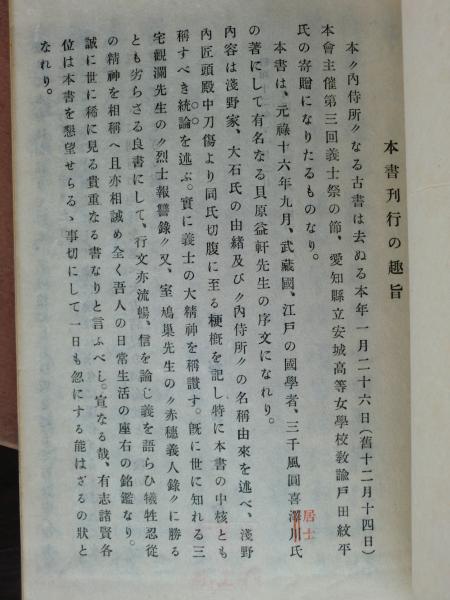 本書刊行の趣旨
本〃內侍所〃なる古書は去ぬる本年一月二十六日(舊十二月十四日)
本會主催第三回義士祭の節、愛知縣立安城高等女學校敎諭戸田紋平
氏の寄贈になりたるものなり。
本書は、元祿十六年九月、武藏國、江戸の國學者、三千風圓喜澤川氏
居士
の著にして有名なる貝原益軒先生の序文になれり。
內容は淺野家、大石氏の由緖及び〃內侍所〃の名稱由來を述べ、淺野
內匠頭殿中刀傷より同氏切腹に至る梗槪を記し特に本書の中核とも
稱すべき統論を述ぶ。實に義士の大精神を稱讚す。旣に世に知れる三
宅觀瀾先生の〃烈士報讐錄〃又、室鳩巢先生の〃赤穗義人錄〃に勝る
とも劣らざる良書にして、行文亦流暢、信を論じ義を語らひ犧牲忍從
の精神を相稱へ且亦相誡め全く吾人の日常生活の座右の銘鑑なり。
誠に世に稀に見る貴重なる書なりと言ふべし。宜なる哉、有志諸賢各
位は本書を懇望せらるゝ事切にして一日も忽にする能はざるの狀と
なれり。